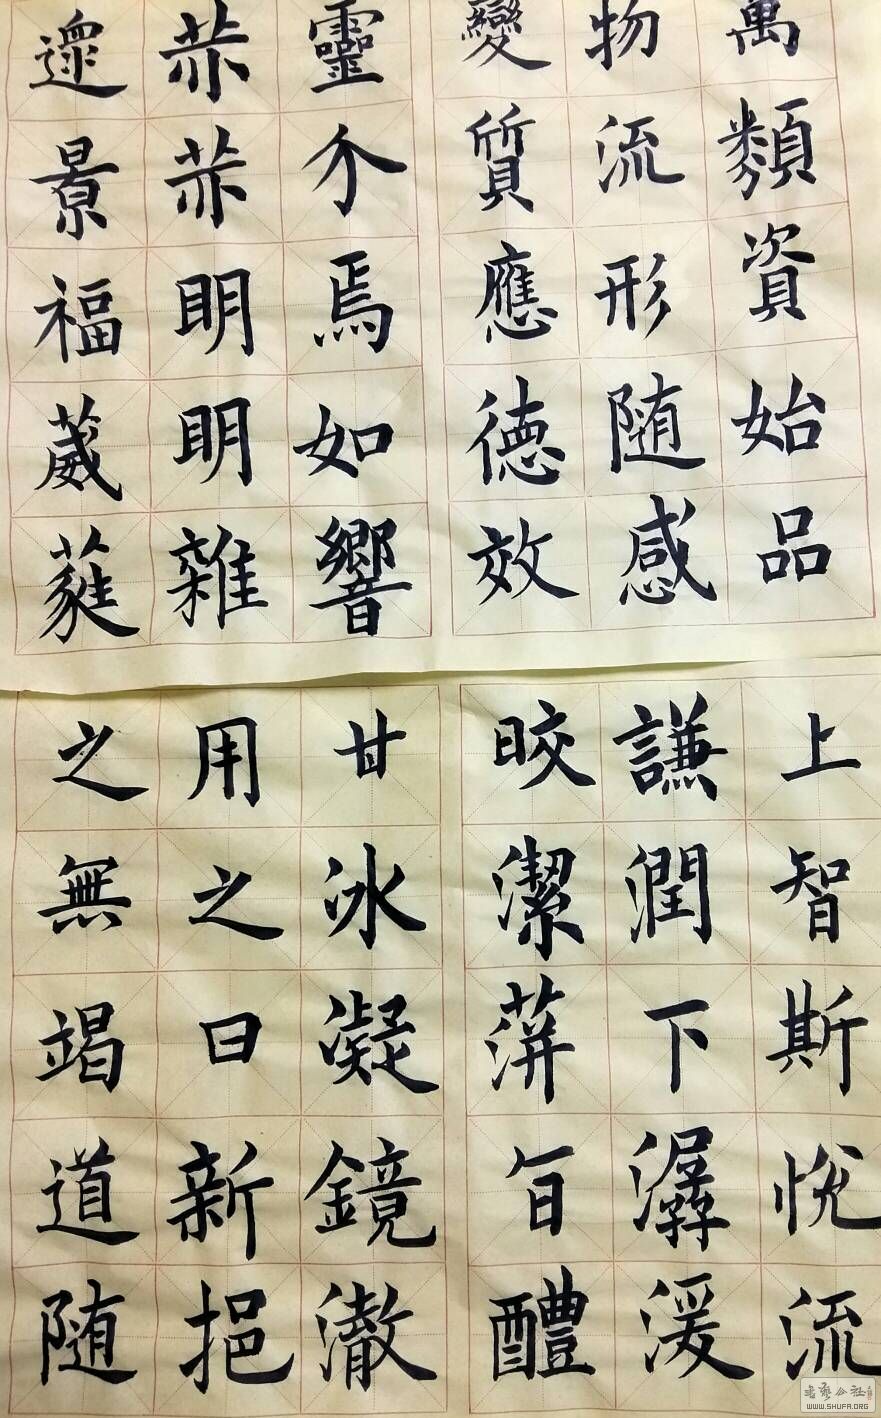 萬類資始品
物流形随感
變質應德效
靈介焉如響
赫赫明明雜
遝景福葳蕤
上智斯悦流
謙潤下潺湲
皎潔蓱旨醴
甘冰凝鏡澈
用之日新挹
之無竭道随
書藝公社
WWW.SHUFA.ORG